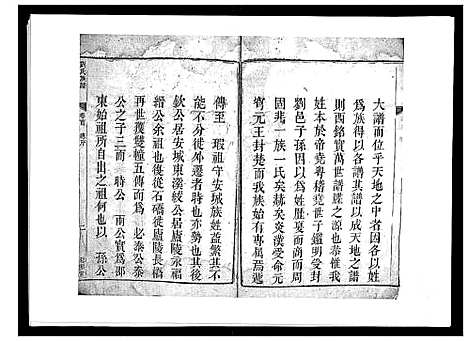 大譜而位乎天地之中者因各以姓
爲族以諸各其譜以成天地之譜
則西銘實萬世譜牒之源也恭惟我
姓本於帝堯粤稽堯世子鑑明受封
劉邑子孫因以爲姓歷夏而商而周
固非一族一氏矣赫矣炎漢受命元
王封楚而我族始有專屬焉遞
傳至 瑕祖守安城族姓益繁不
能不分徙外遷者時也亦勢也其後
欽公居安城東溪綬公居廬陵永福
縉公余祖也復從石橋徙廬陵長橋
再世獲雙幢五傳而爲 必泰公泰
公之子三而 時公 南公實爲邵
東始祖所自出之祖何也以 孫公
劉氏族譜
卷首